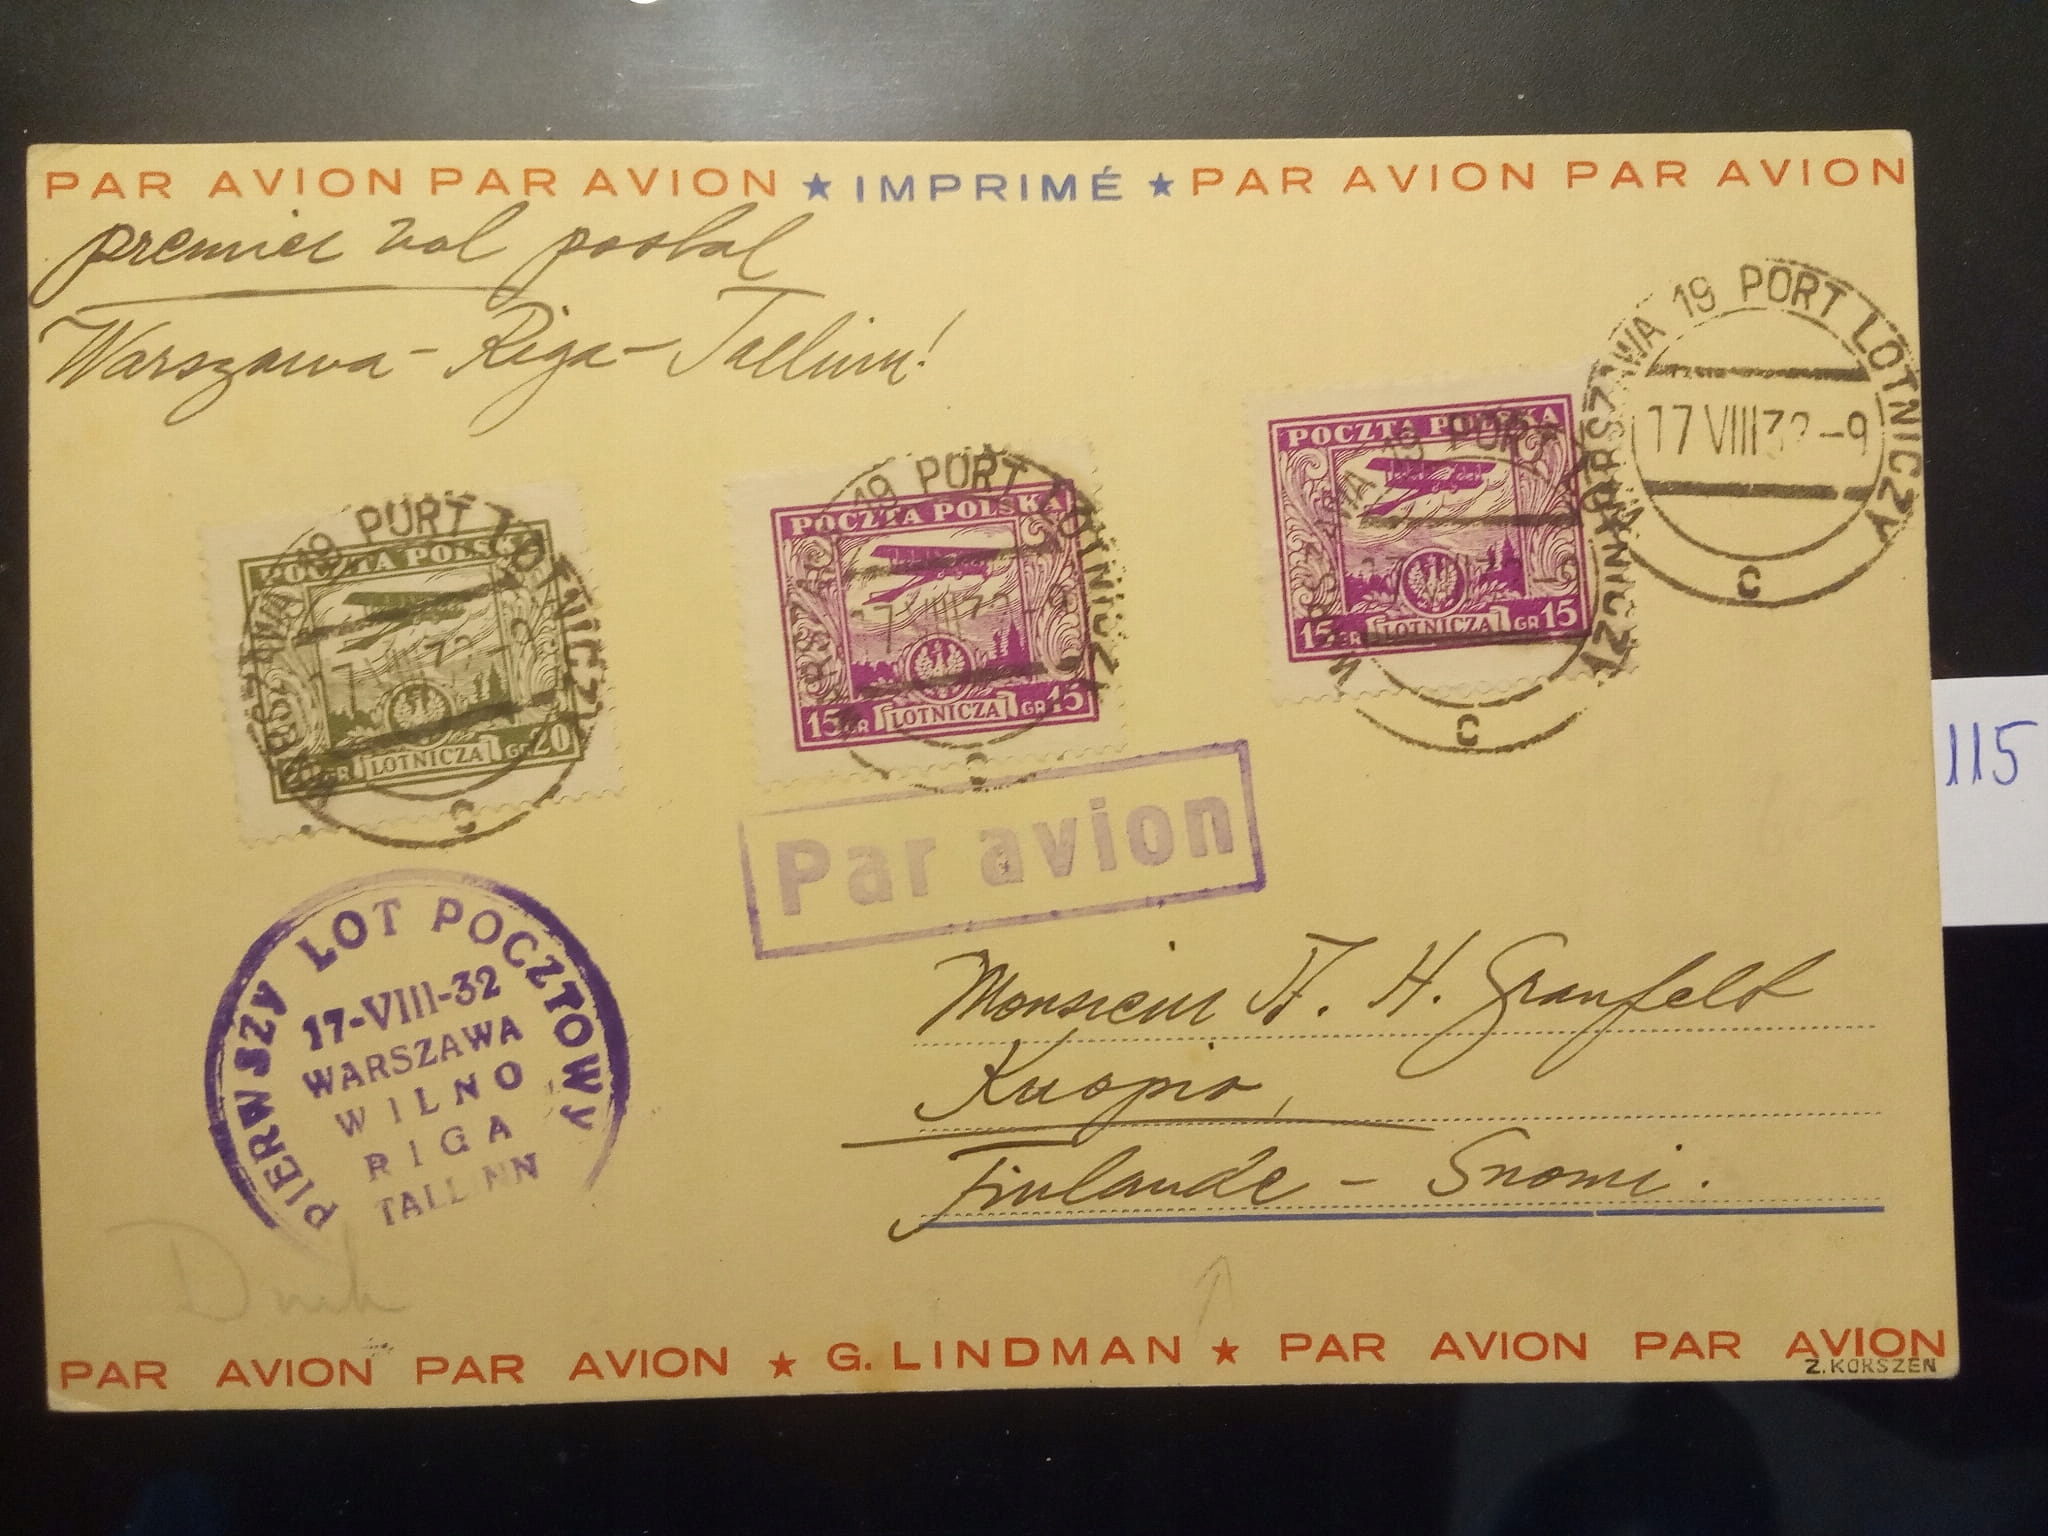 PAR AVION PAR AVION ★ IMPRIMÉ ★ PAR AVION PAR AVION
premier vol postal
Warszawa - Riga - Tallinn!
WARSZAWA 19 PORT LOTNICZY
17 VIII 32 -9
C
POCZTA POLSKA
20 GR LOTNICZA GR 20
WARSZAWA 19 PORT LOTNICZY
C
POCZTA POLSKA
15 GR LOTNICZA GR 15
WARSZAWA 19 PORT LOTNICZY
17 VIII 32 -9
C
POCZTA POLSKA
15 GR LOTNICZA GR 15
WARSZAWA 19 PORT LOTNICZY
C
115
Par avion
PIERWSZY LOT POCZTOWY
17-VIII-32
WARSZAWA
WILNO
RIGA
TALLINN
Monsieur A. H. Granfelt
Kuopio,
Finlande - Suomi.
PAR AVION PAR AVION ★ G. LINDMAN ★ PAR AVION PAR AVION
Z. KORSZEN